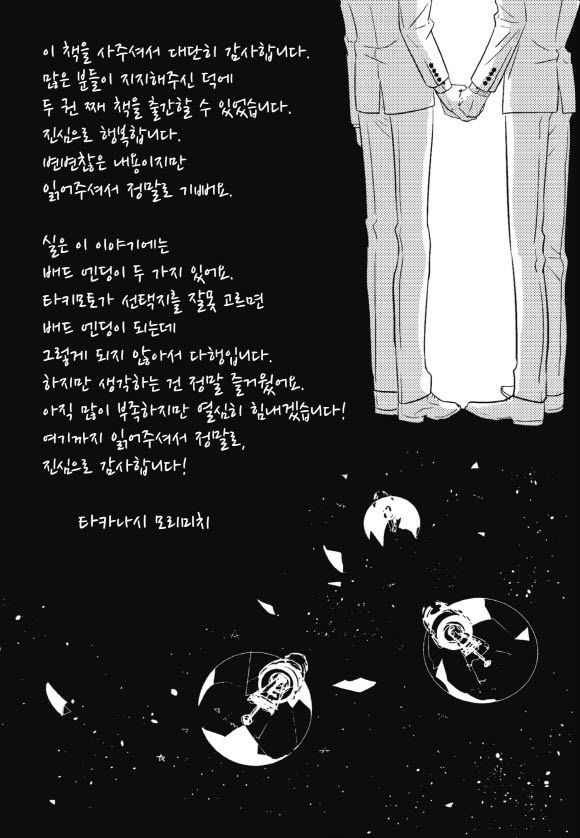 이 책을 사주셔서 대단히 감사합니다.
많은 분들이 지지해주신 덕에
두 권 째 책을 출간할 수 있었습니다.
진심으로 행복합니다.
변변찮은 내용이지만
읽어주셔서 정말로 기뻐요.
실은 이 이야기에는
배드 엔딩이 두 가지 있어요.
타키모토가 선택지를 잘못 고르면
배드 엔딩이 되는데
그렇게 되지 않아서 다행입니다.
하지만 생각하는 건 정말 즐거웠어요.
아직 많이 부족하지만 열심히 힘내겠습니다!
여기까지 읽어주셔서 정말로,
진심으로 감사합니다!
타카나시 모리미치